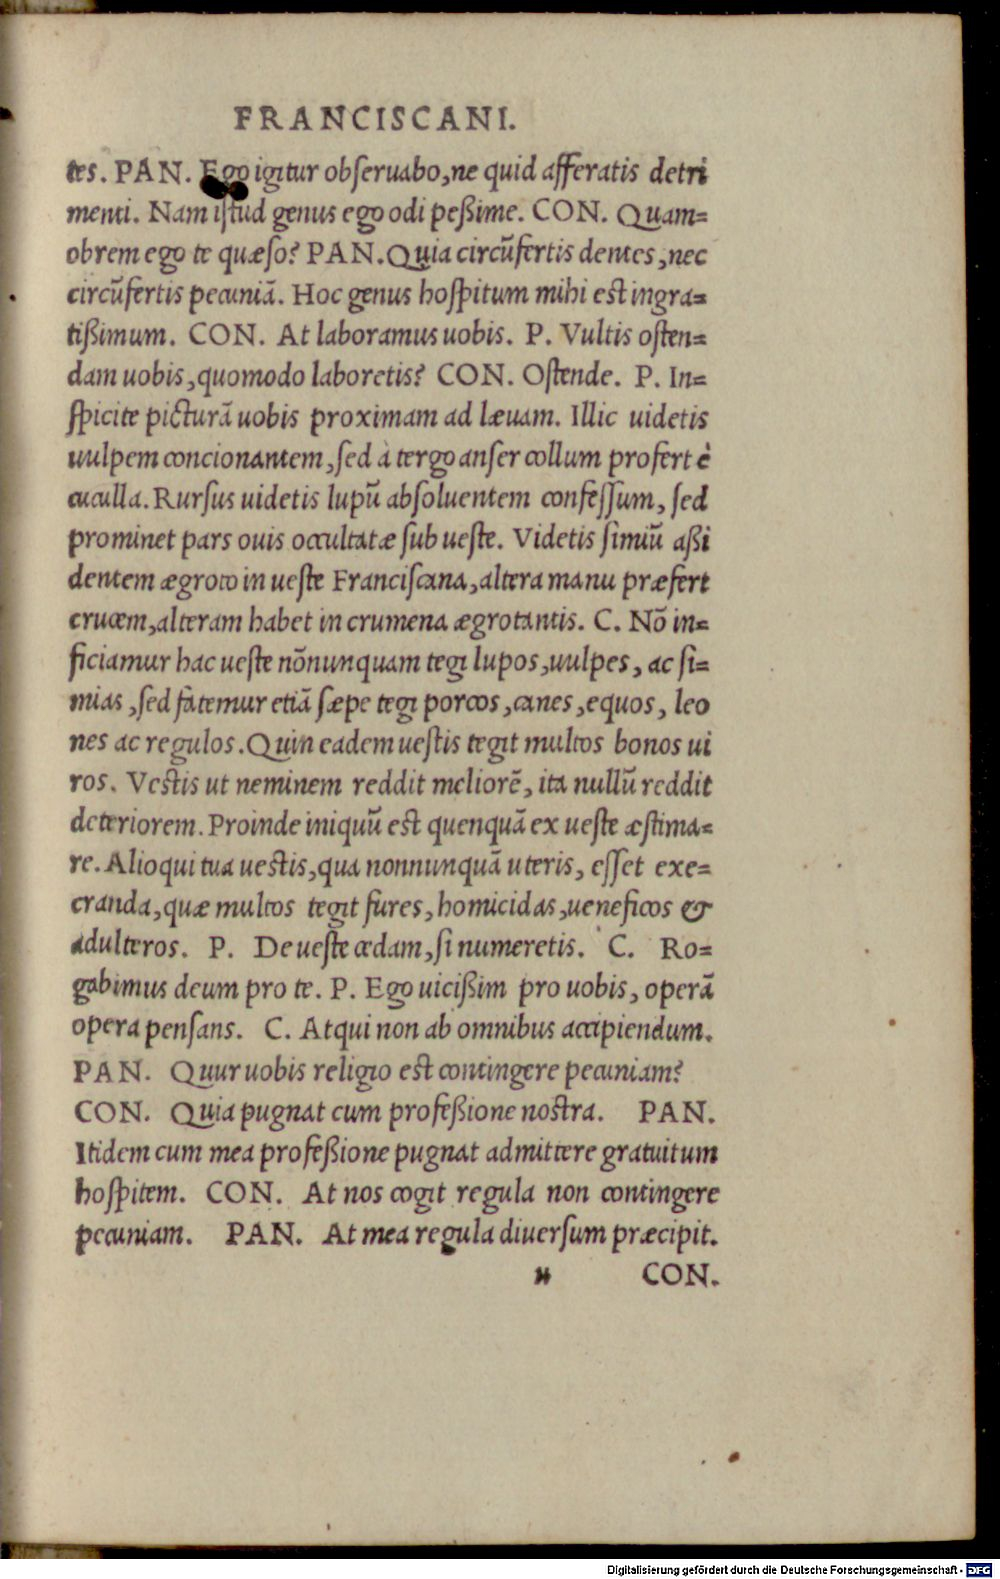 FRANCISCANI.
tes. PAN. Ego igitur obſeruabo, ne quid afferatis detri
menti. Nam iſtud genus ego odi peßime. CON. Quam=
obrem ego te quæſo? PAN. Quia circũfertis dentes, nec
circũfertis pecuniã. Hoc genus hoſpitum mihi est ingra=
tißimum. CON. At laboramus uobis. P. Vultis oſten=
dam uobis, quomodo laboretis? CON. Oſtende. P. In=
ſpicite picturã uobis proximam ad læuam. Illic uidetis
uulpem concionantem, ſed à tergo anſer collum profert è
cuculla. Rurſus uidetis lupũ abſoluentem confeſſum, ſed
prominet pars ouis occultatæ ſub ueſte. Videtis ſimiũ aßi
dentem ægroto in ueſte Franciſcana, altera manu præfert
crucem, alteram habet in crumena ægrotantis. C. Nõ in=
ficiamur hac ueſte nõnunquam tegi lupos, uulpes, ac ſi=
mias, ſed fatemur etiã ſæpe tegi porcos, canes, equos, leo
nes ac regulos. Quin eadem ueſtis tegit multos bonos ui
ros. Veſtis ut neminem reddit meliorẽ, ita nullũ reddit
deteriorem. Proinde iniquũ est quenquã ex ueſte æſtima=
re. Alioqui tua ueſtis, qua nonnunquã uteris, eſſet exe=
cranda, quæ multos tegit fures, homicidas, ueneficos &
adulteros. P. De ueſte cedam, ſi numeretis. C. Ro=
gabimus deum pro te. P. Ego uicißim pro uobis, operã
opera penſans. C. Atqui non ab omnibus accipiendum.
PAN. Quur uobis religio est contingere pecuniam?
CON. Quia pugnat cum profeßione noſtra. PAN.
Itidem cum mea profeßione pugnat admittere gratuitum
hoſpitem. CON. At nos cogit regula non contingere
pecuniam. PAN. At mea regula diuerſum præcipit.
CON.
Digitalisierung gefördert durch die Deutsche Forschungsgemeinschaft - DFG